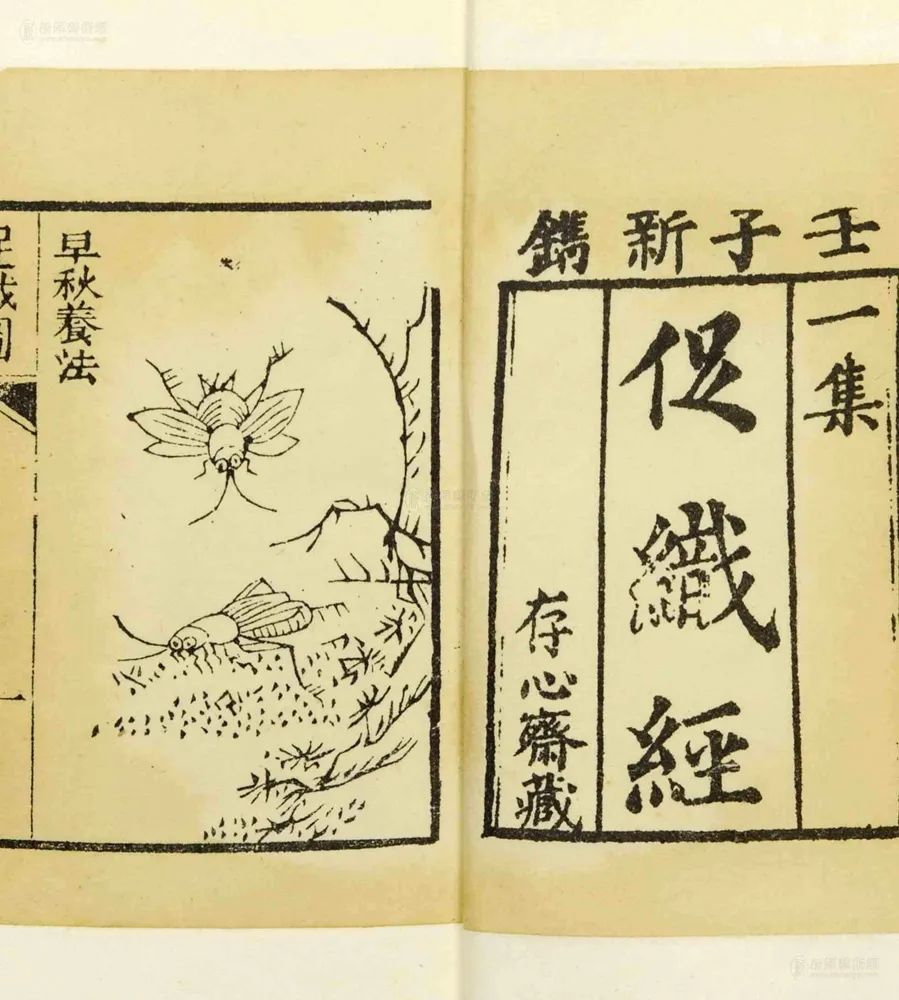 壬子新鐫
一集
促織經
存心齋藏
早秋養法
促織圖
一